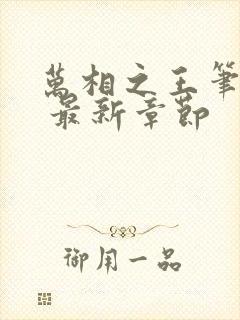 萬相之王筆
最新章節
御用一品